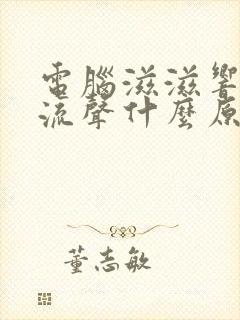 電腦滋滋響
流聲什麼原
董志敏